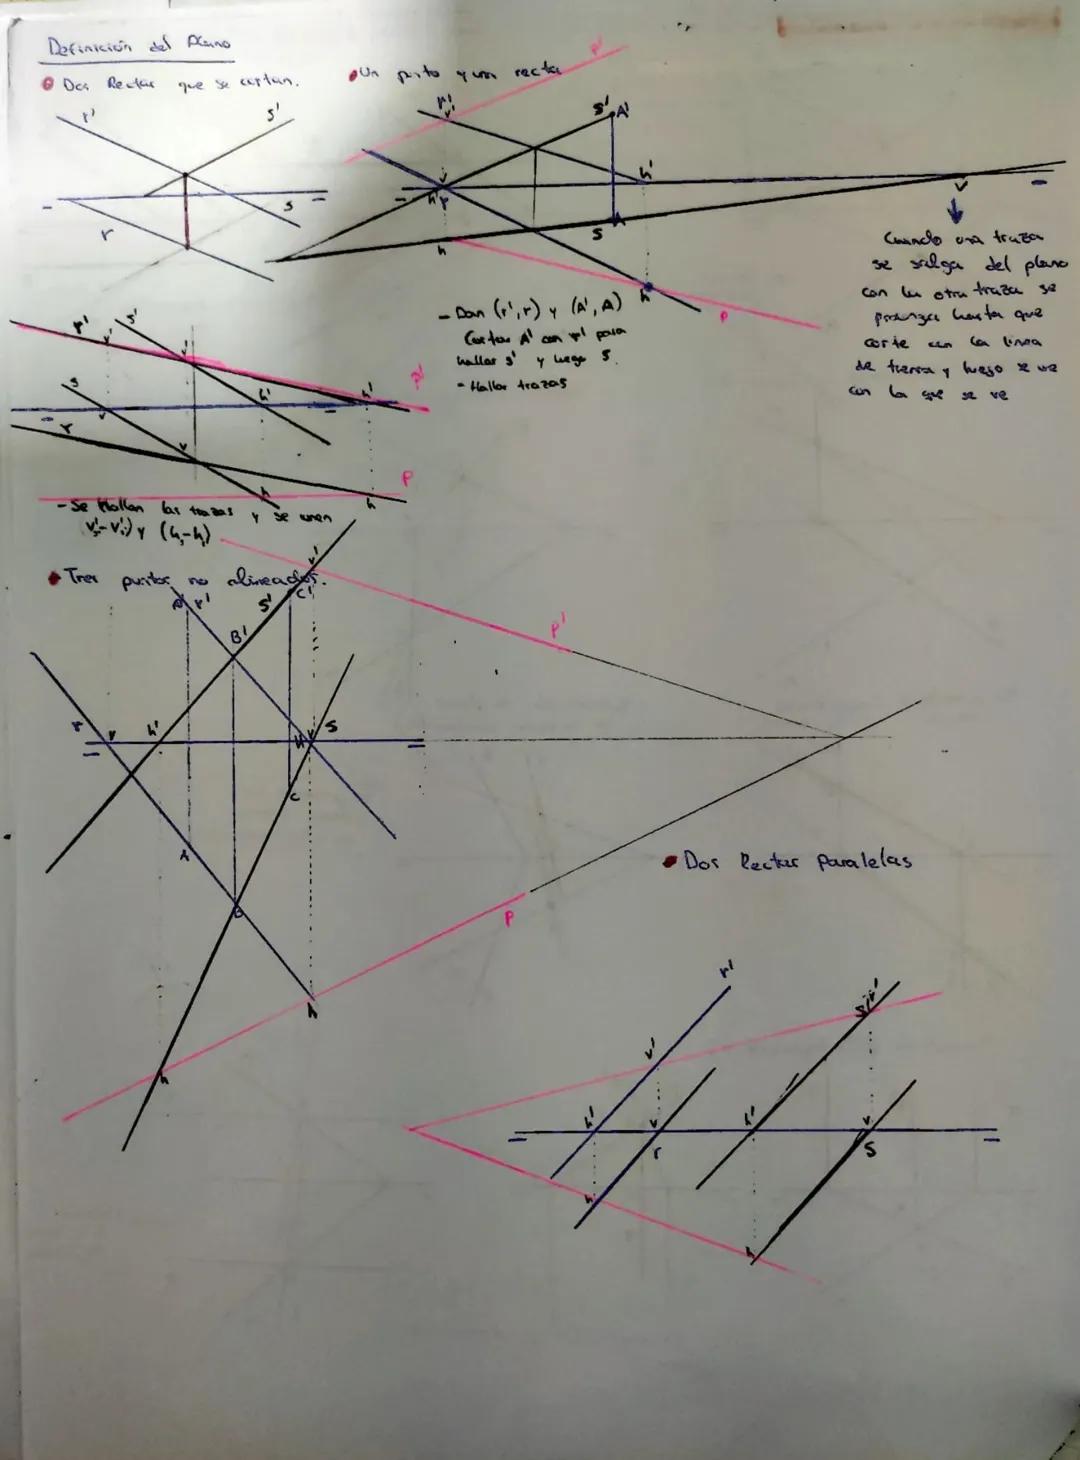 Definición del Plano
Dos Rectas que se cortan.
Un punto y una recta
r'
s'
s
r
p'
r'
v'
s'
A'
h'
v
h'
r
v
A
s
h
h
p
Cuando una traza
se salga del plano
con la otra traza se
prolonga hasta que
corte con la linea
de tierra y luego se ve
con la que se ve
- Dan (r', r) y (A', A)
Cortar A' con r' para
hallar s' y luego s.
- Hallar trazas
r'
s'
v'
v'
p'
s
h'
h'
v
r
v
p
h
h
- Se Hallan las trazas y se unen
y
Tres puntos no alineados.
v'
r'
s'
C'
B'
p'
r
v
h'
v
s
C
A
B
p
h
h
Dos Rectas Paralelas
r'
v'
h'
v
h'
v
r
s
h
h